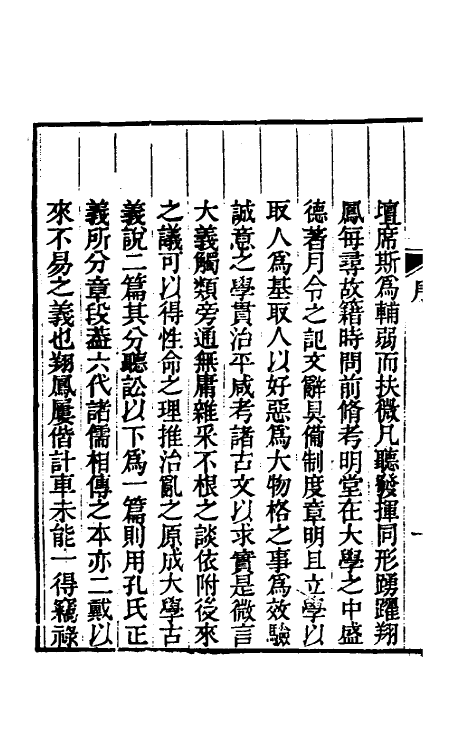 壇席斯為輔弱而扶微凡聽發揮同形踴躍翔
鳳每尋故籍時問前脩考明堂在大學之中盛
德著月令之記文辭具備制度章明且立學以
取人為基取人以好惡為大物格之事為效驗
誠意之學貫治平咸考諸古文以求實是微言
大義觸類旁通無庸雜采不根之談依附後來
之議可以得性命之理推治亂之原成大學古
義說二篇其分聽訟以下為一篇則用孔氏正
義所分章段葢六代諸儒相傳之本亦二戴以
來不易之義也翔鳳屢偕計車未能一得竊祿
序
一